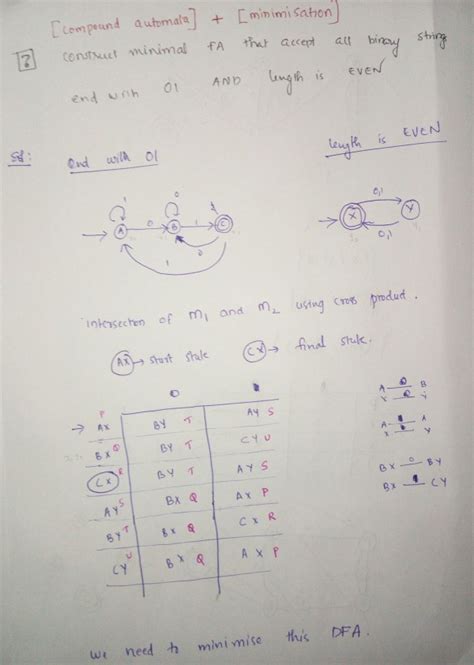 [compound automata] + [minimisation]
? construct minimal FA that accept all binary string
end with 01 AND length is EVEN
Sol: end with 01
length is EVEN
1 0
A 0 B 1 C
0
1
0,1
X Y
0,1
intersection of M1 and M2 using cross product.
AX → start state CX → final state.
0 1
P
→ AX BY T AY S
BX Q BY T CY U
CX R BY T AY S
AY S BX Q AX P
BY T BX Q CX R
CY U BX Q AX P
A 0 B
X 0 Y
A 1 A
X 1 Y
BX 0 BY
BX 1 CY
we need to minimise this DFA.